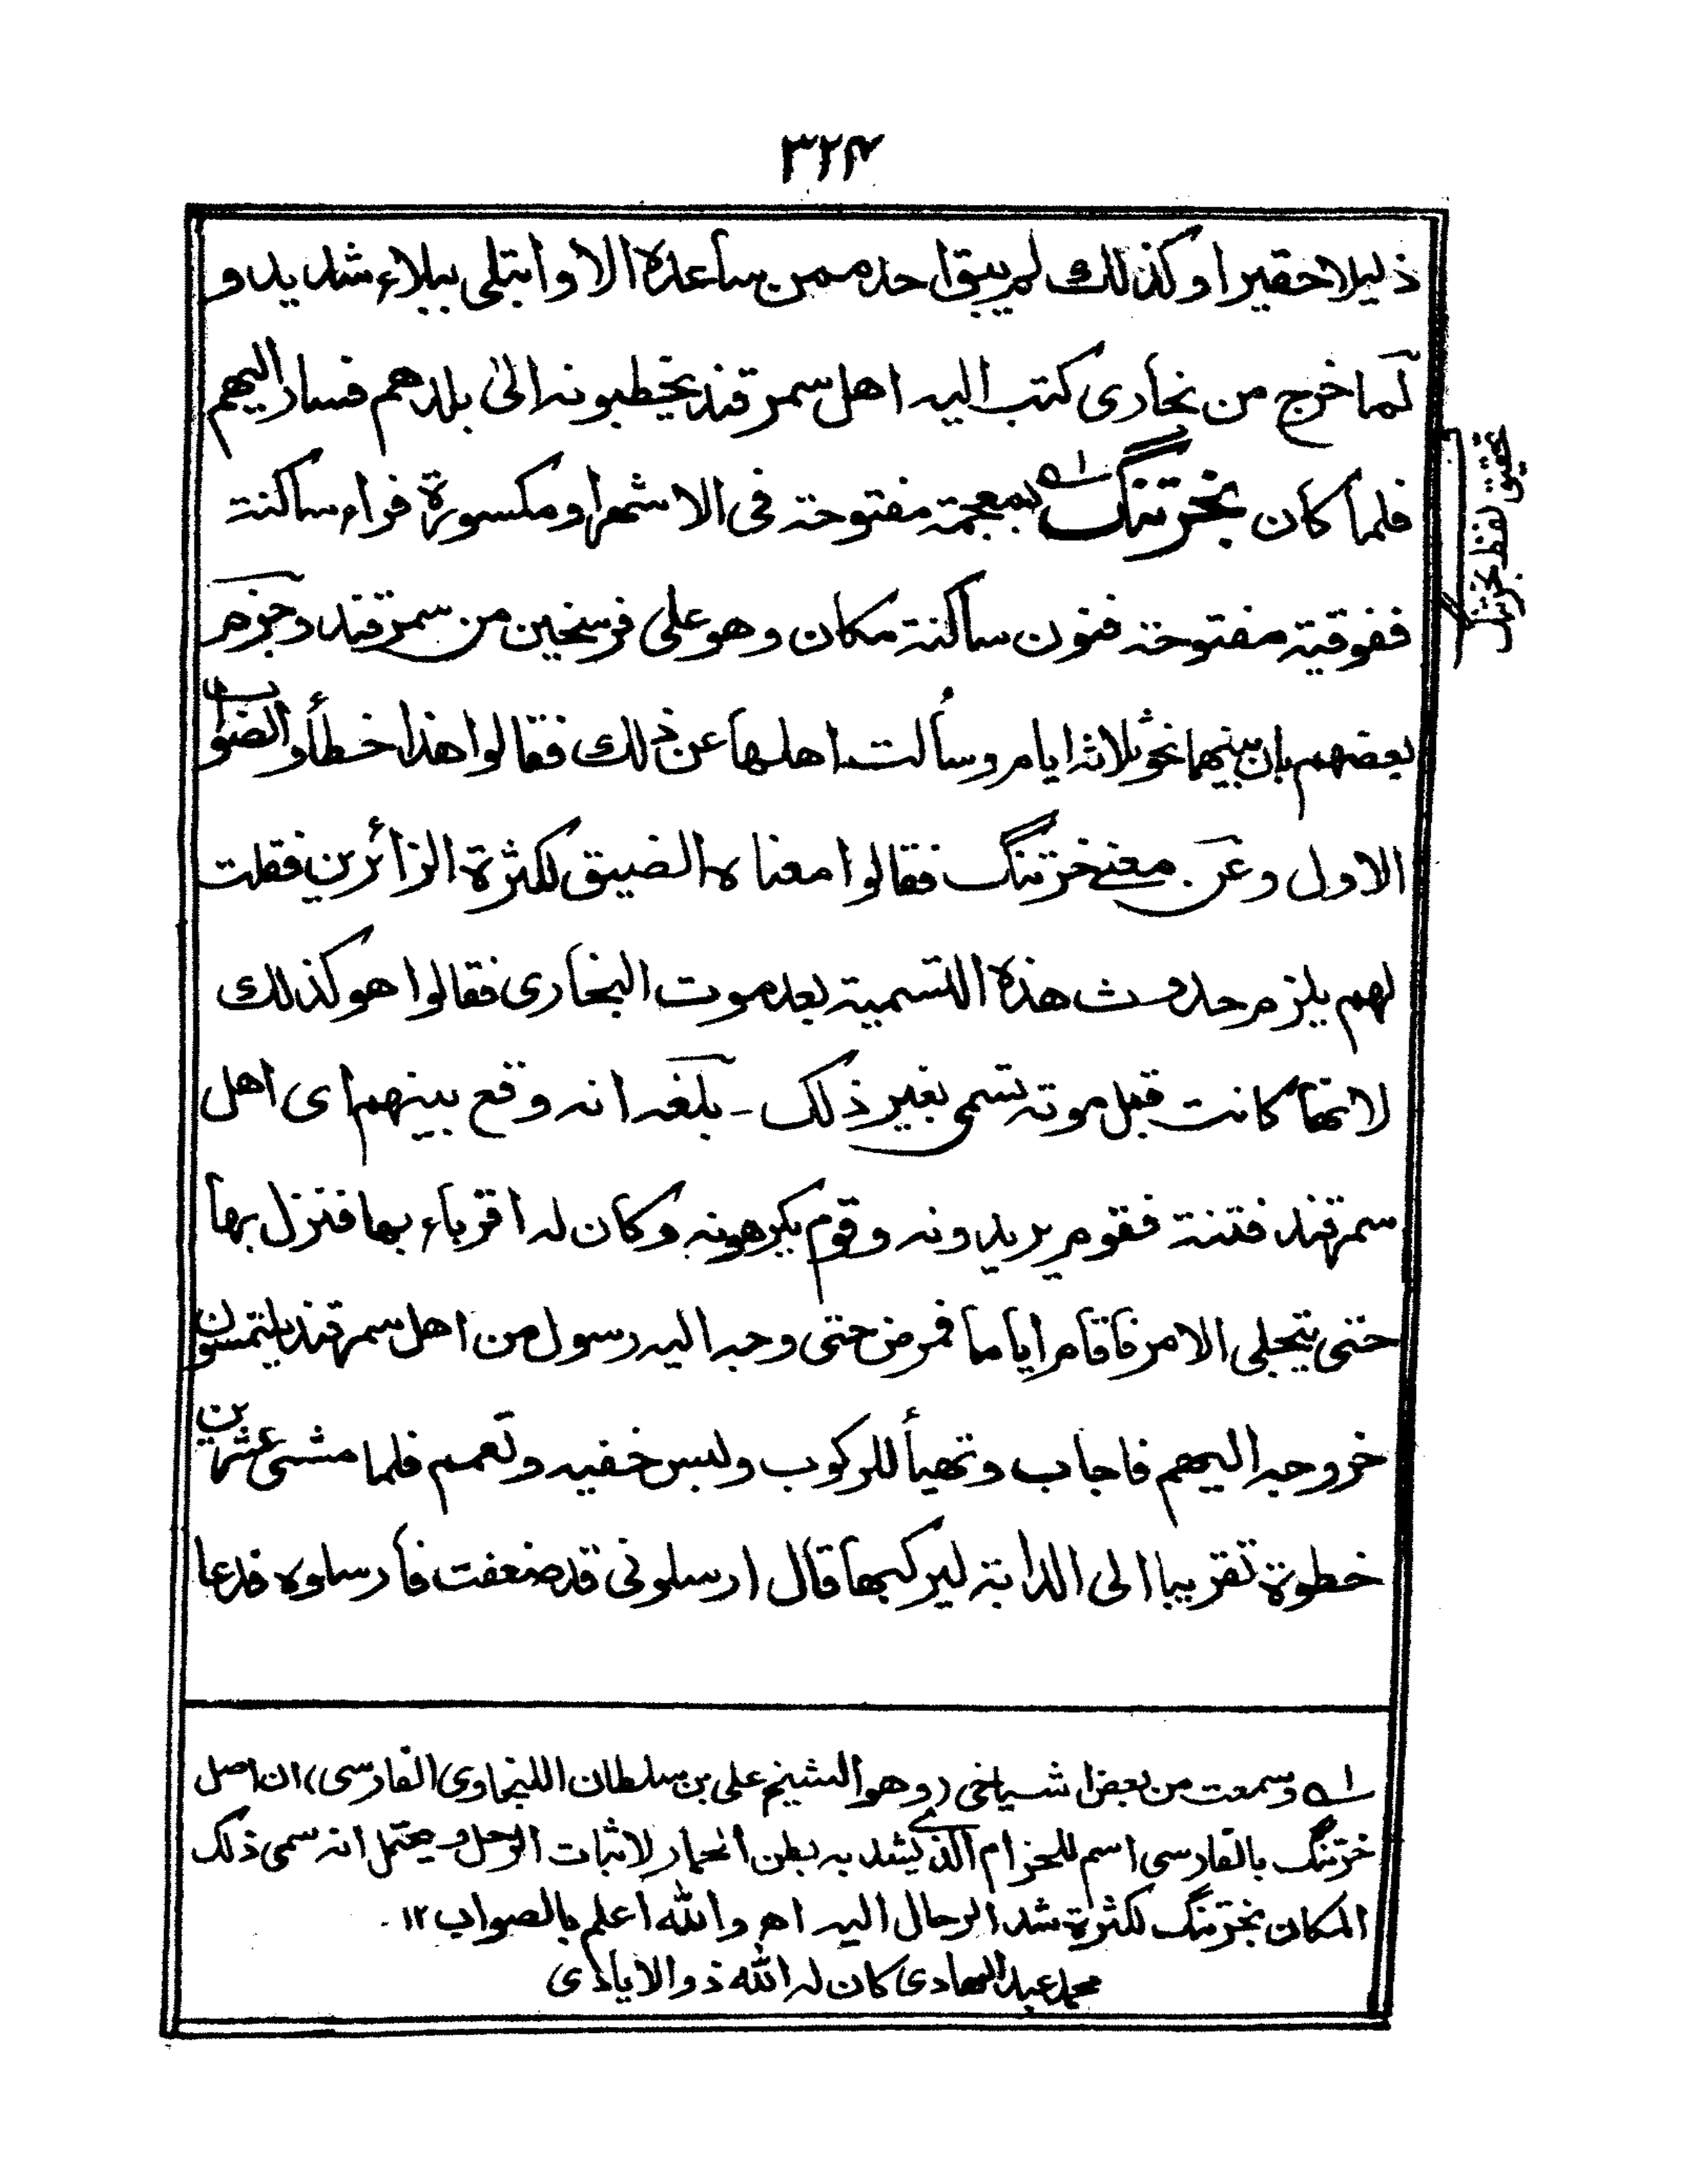 ۳۲۴
ذليلا حقيرا وكذلك لم يبق احد ممن ساعده الا وابتلى ببلاء شديد و
لما خرج من بخارى كتب اليه اهل سمرقند يخطبونه الى بلدهم فسار اليهم
فلما كان بخرتنگ لـه بمعجمة مفتوحة فى الاشهر او مكسورة فراء ساكنة
ففوقية مفتوحة فنون ساكنة مكان وهو على فرسخين من سمرقند وجزم
بعضهم بان بينهما نحو ثلاثة ايام وسألت اهلها عن ذلك فقالوا هذا خطأ والصواب
الاول وعن معنے خرتنگ فقالوا معناه الضيق لكثرة الزائرين فقلت
لهم يلزم حدوث هذه التسمية بعد موت البخارى فقالوا هو كذلك
لانها كانت قبل موته تسمى بغير ذلك - بلغه انه وقع بينهم اى اهل
سمرقند فتنة فقوم يريدونه وقوم يكرهونه وكان له اقرباء بها فنزل بها
حتى ينجلى الامر فاقام اياما فمرض حتى وجه اليه رسول من اهل سمرقند يلتمسون
خروجه اليهم فاجاب وتهيأ للركوب ولبس خفيه وتعمم فلما مشى عشرين
خطوة تقريبا الى الدابة ليركبها قال ارسلونى قد ضعفت فأرسلوه فدعا
تحقيق لفظ بخرتنگ
لـه وسمعت من بعض اشياخى (وهو الشيخ على بن سلطان اللنجاوى الفارسى) ان اصل
خرتنگ بالفارسى اسم للحزام الذے يشد به بطن الحمار لاثبات الرحل و يحتمل انه سمى ذلك
المكان بخرتنگ لكثرة شد الرحال اليه اھ والله اعلم بالصواب ۱۲ -
محمد عبد الهادى كان له الله ذو الايادى